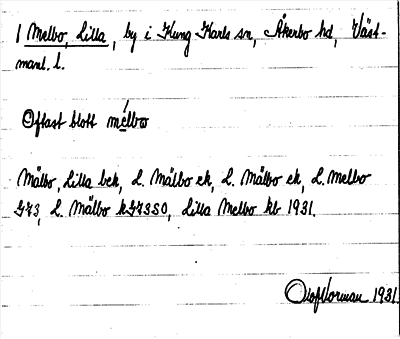 1 Melbo, Lilla, by i Kung Karls sn, Åkerbo hd, Väst-
manl. l.
Oftast blott mélbω
Målbo, Lilla bek, L. Målbo ek, L. Målbo ek, L. Melbo
GK3, L. Målbo kGK3SO, Lilla Melbo kb 1931.
Olof Norman 1931.